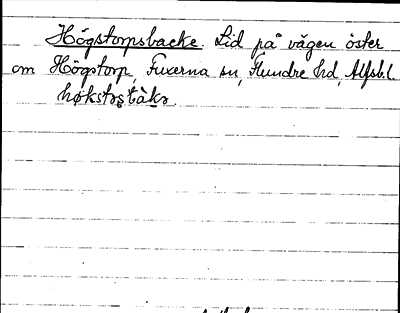 Högstorpsbacke. Lid på vägen öster
om Högstorp, Fuxerna sn, Flundre hd, Älfsb. l.